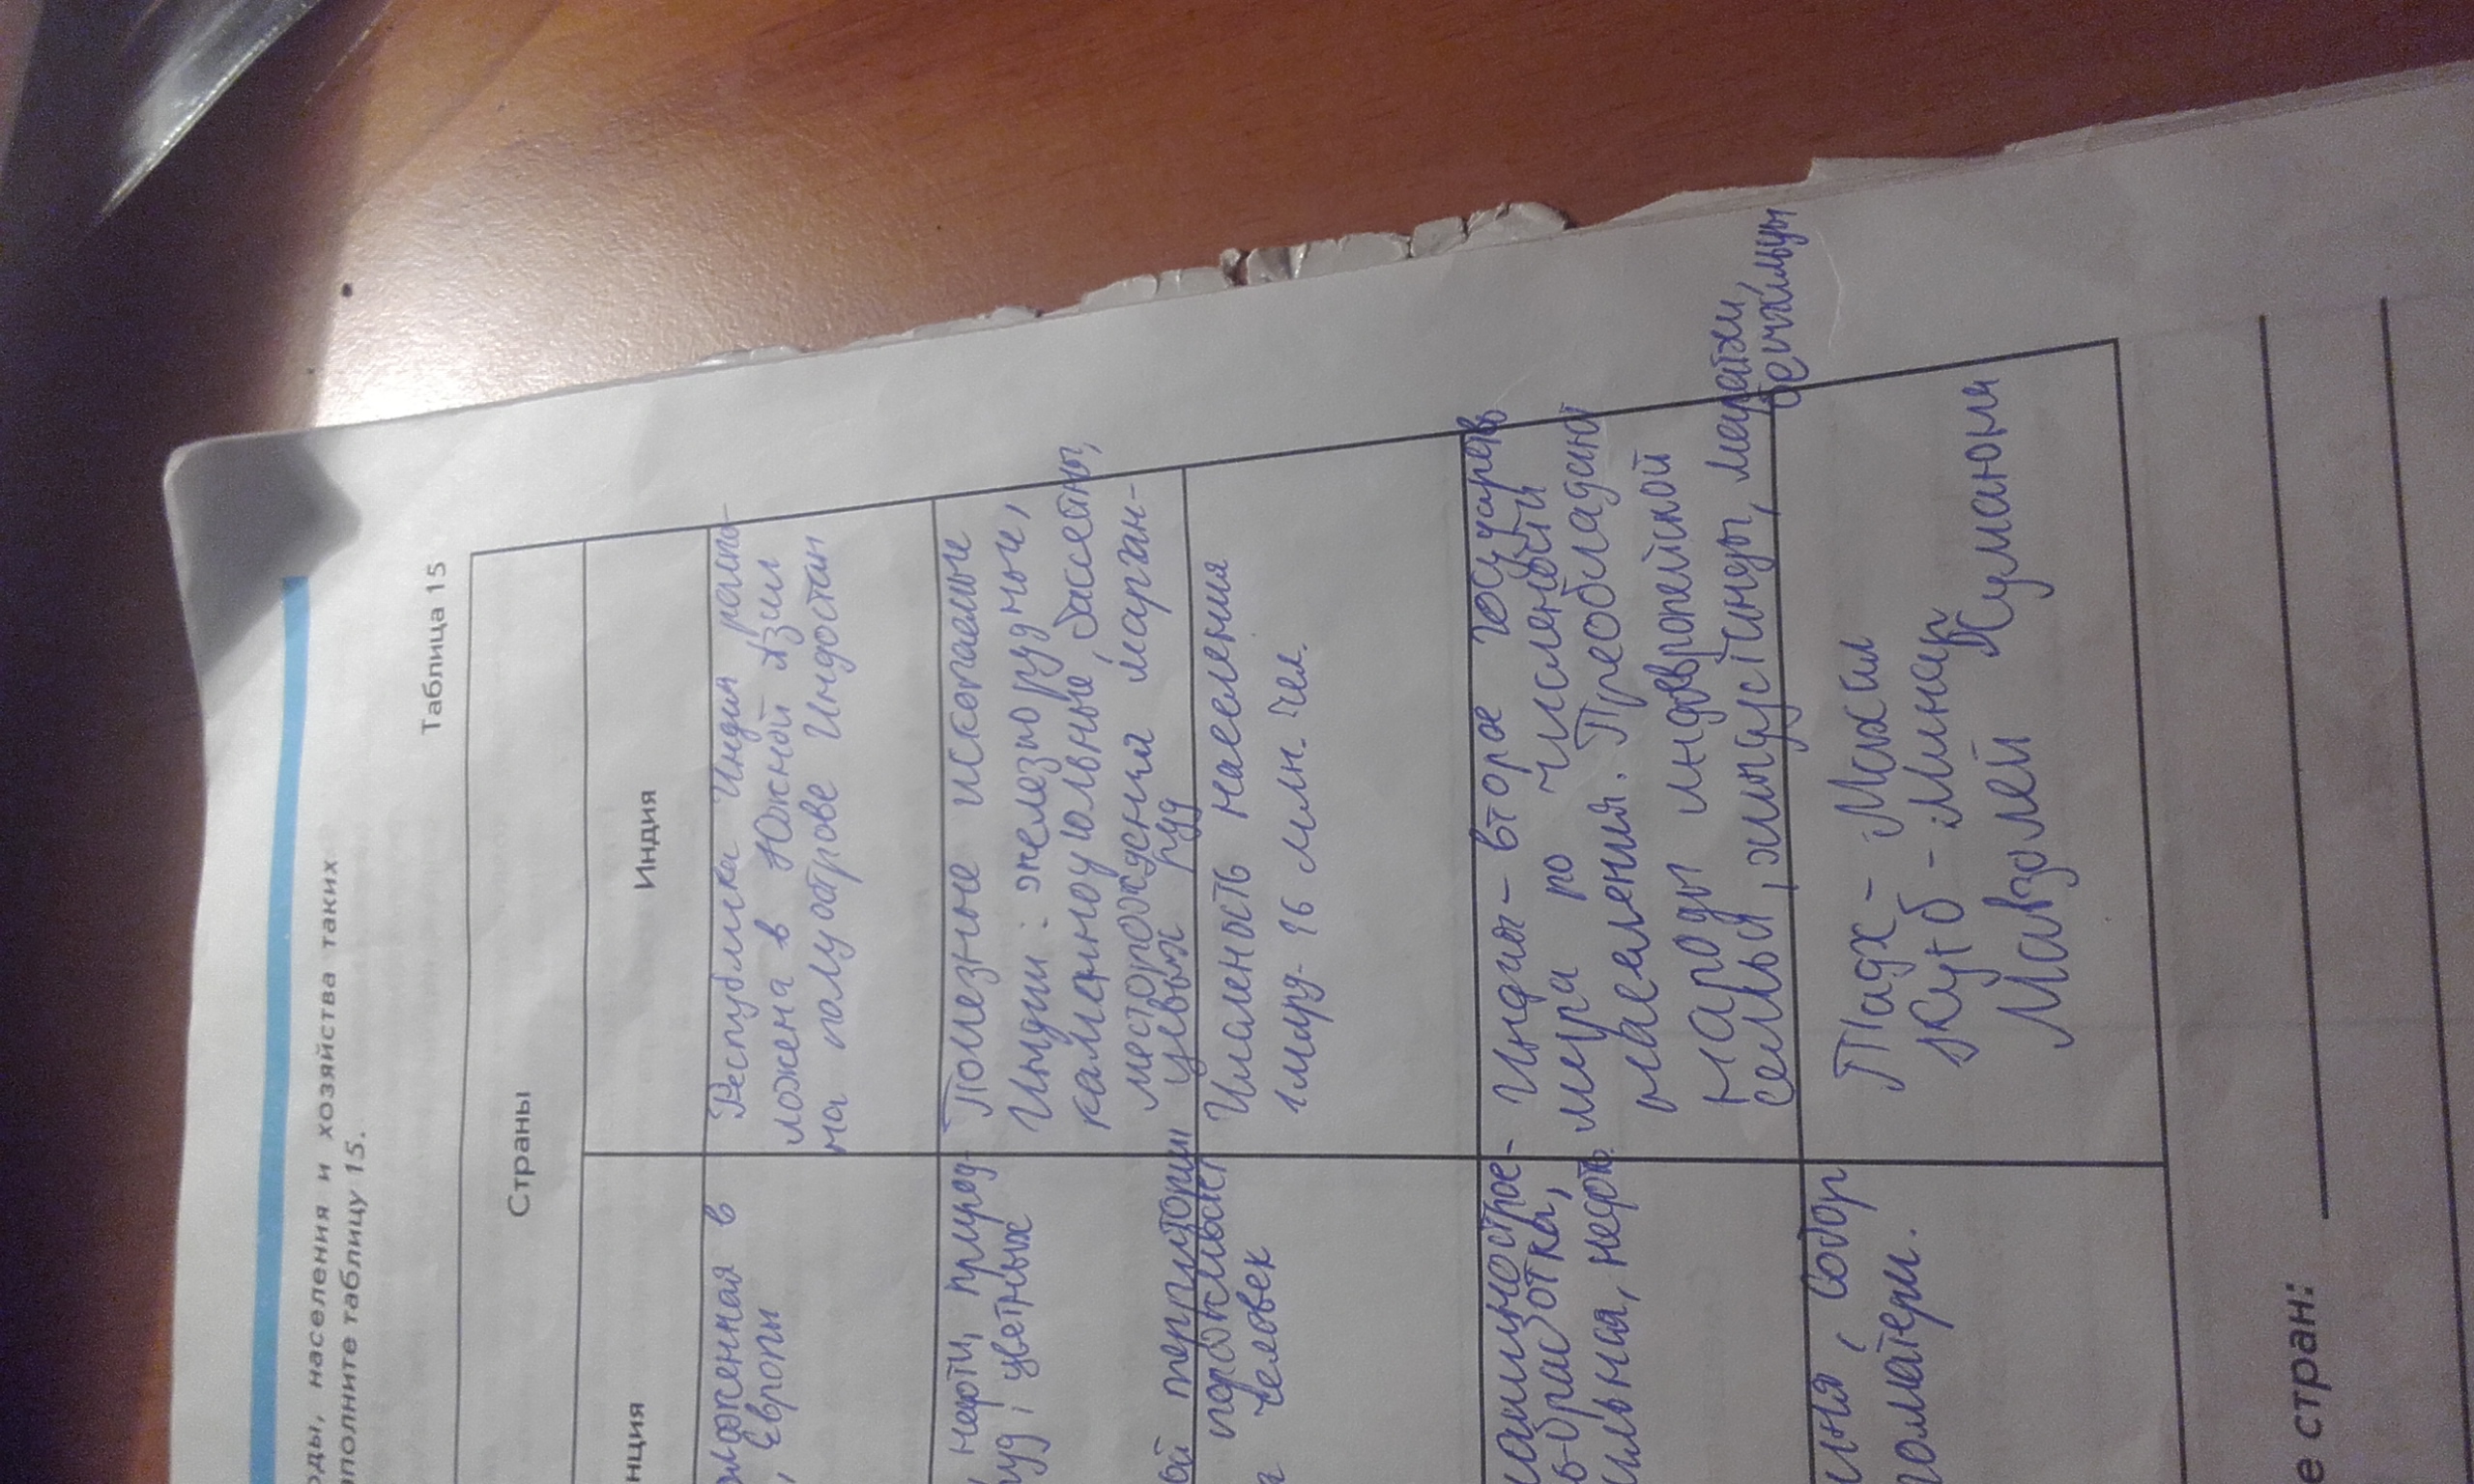 оды, населения и хозяйства таких
аполните таблицу 15.
Таблица 15
Страны
нция
Индия
ложенная в
, Европы
Республика Индия распо-
ложена в Южной Азии
на полуострове Индостан
нефти, природ-
руд, цветных
Полезные ископаемые
Индии: железнорудные,
каменноугольные бассейны,
месторождения марган-
цевых руд
ой территории
проживает
человек
Численность населения
1 млрд- 16 млн. чел.
машинострое-
отка,
ильная, нефт
Индия - второе государств
мира по численности
населения. Преобладают
народы индоевропейской
семьи, хиндустинцы, маратхи,
бенгальцы
, собор
гоматери.
Тадж - Махал
Кутб - Минар
Мавзолей Хумаюна
е стран: